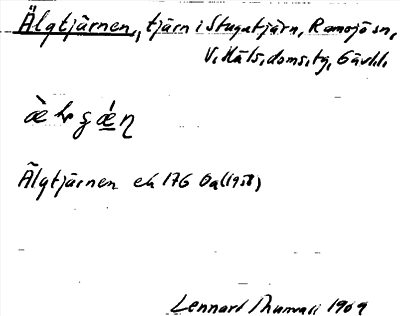 Älgtjärnen, tjärn i Stugutjärn, Ramsjö sn,
V. Häls. doms. tg, Gävlel.
Älgtjärnen ek 176 Öa (1958)
Lennart Thunvall 1969